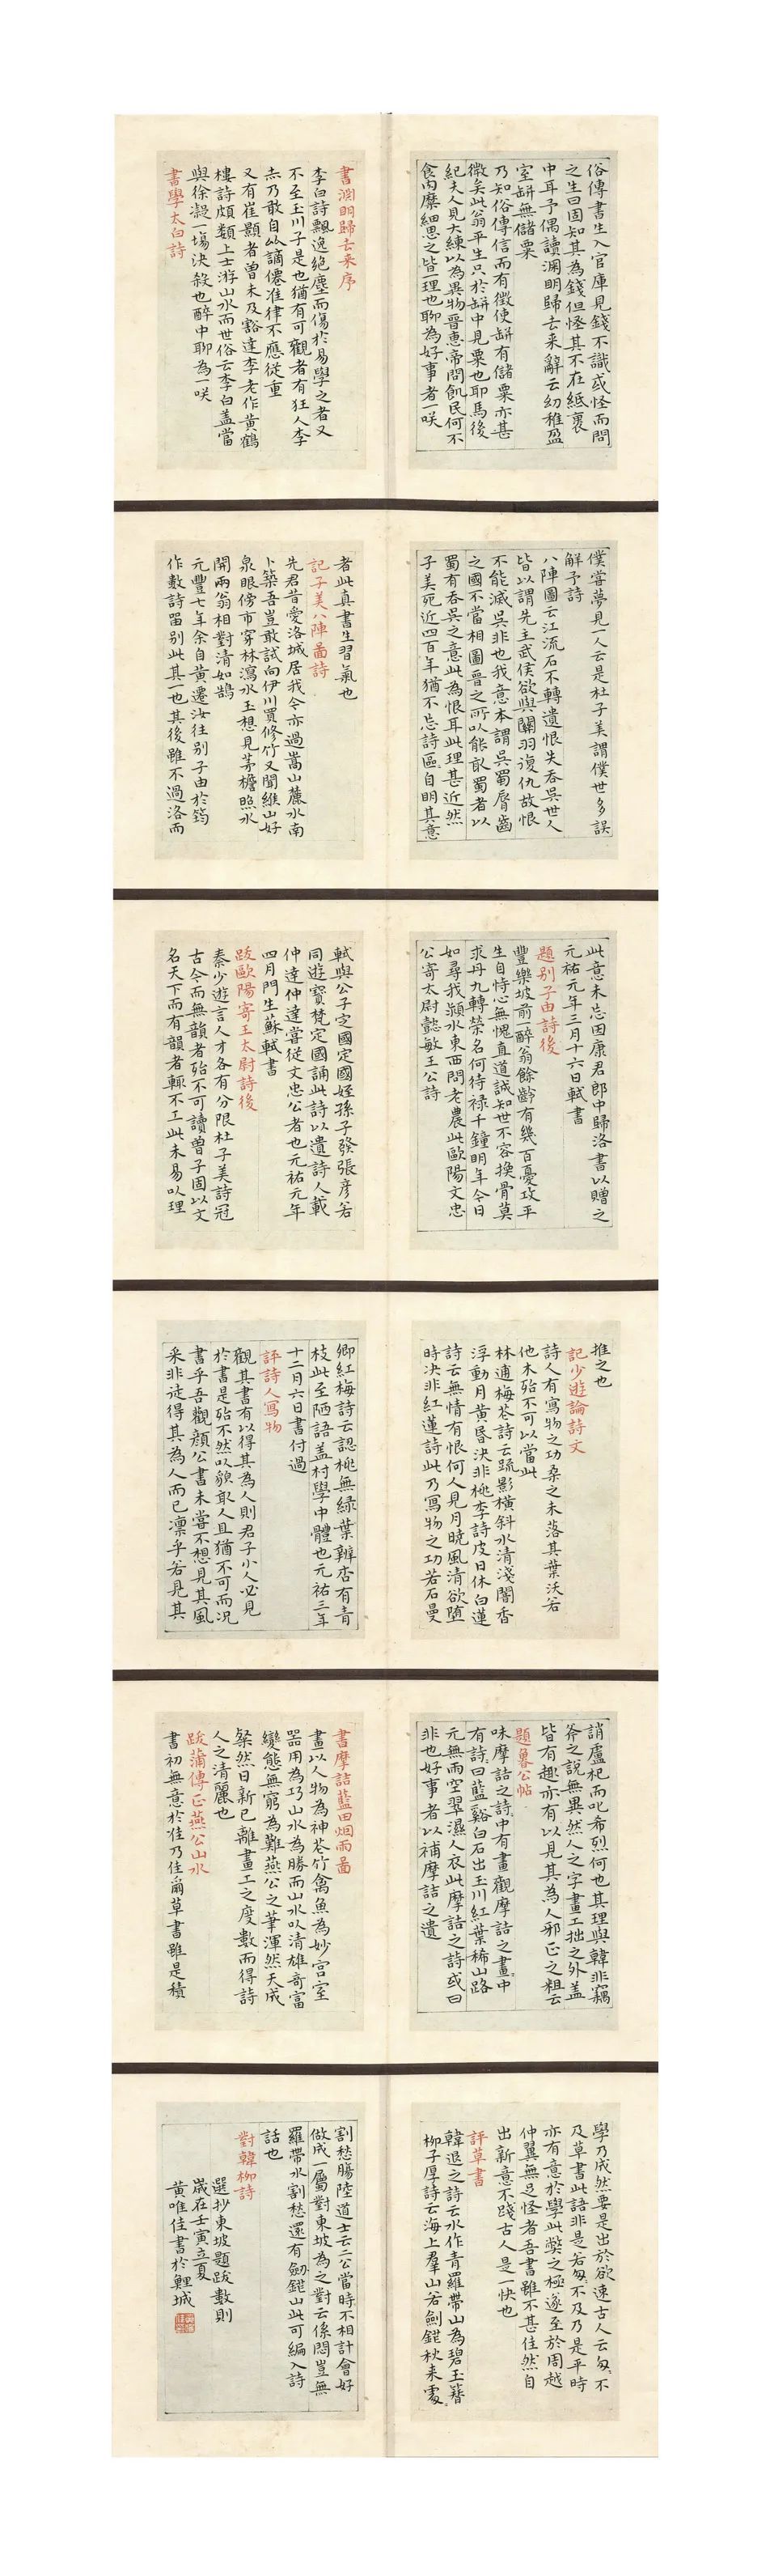 俗傳書生入官庫見錢不識或怪而問
之生曰固知其為錢但怪其不在紙裹
中耳予偶讀淵明歸去來辭云幼稚盈
室缾無儲粟
乃知俗傳信而有徵使缾有儲粟亦甚
微矣此翁平生只於缾中見粟也耶馬後
紀夫人見大練以為異物晉惠帝問飢民何不
食肉糜細思之皆一理也聊為好事者一咲
書淵明歸去來序
李白詩飄逸絕塵而傷於易學之者又
不至玉川子是也猶有可觀者有狂人李
赤乃敢自以謫僊准律不應從重
又有崔顥者曾未及豁達李老作黃鶴
樓詩頗類上士游山水而世俗云李白盖當
與徐凝一塲決殺也醉中聊為一咲
書學太白詩
僕嘗夢見一人云是杜子美謂僕世多誤
解予詩
八陣圖云江流石不轉遺恨失吞吳世人
皆以謂先主武侯欲與關羽復仇故恨
不能滅吳非也我意本謂吳蜀脣齒
之國不當相圖晉之所以能取蜀者以
蜀有吞吳之意此為恨耳此理甚近然
子美死近四百年猶不忘詩區自明其意
者此真書生習氣也
記子美八陣圖詩
先君昔愛洛城居我今亦過嵩山麓水南
卜築吾豈敢試向伊川買修竹又聞緱山好
泉眼傍市穿林瀉水玉想見茅檐照水
開兩翁相對清如鵠
元豐七年余自黃遷汝往别子由於筠
作數詩畱别此其一也其後雖不過洛而
此意未忘因康君郎中歸洛書以贈之
元祐元年三月十六日軾書
題别子由詩後
豐樂坡前醉翁餘齡有幾百憂攻平
生自恃心無愧直道誠知世不容換骨莫
求丹九轉榮名何待祿千鐘明年今日
如尋我潁水東西問老農此歐陽文忠
公寄太尉懿敏王公詩
軾與公子定國定國姪孫子發張彦若
同遊寶梵定國誦此詩以遺詩人載
仲達仲達嘗從文忠公者也元祐元年
四月門生蘇軾書
跋歐陽寄王太尉詩後
秦少遊言人才各有分限杜子美詩冠
古今而無韻者殆不可讀曾子固以文
名天下而有韻者輒不工此未易以理
推之也
記少遊論詩文
詩人有寫物之功桑之未落其葉沃若
他木殆不可以當此
林逋梅花詩云疏影橫斜水清淺闇香
浮動月黃昏決非桃李詩皮日休白蓮
詩云無情有恨何人見月曉風清欲墮
時決非紅蓮詩此乃寫物之功若石曼
卿紅梅詩云認桃無綠葉辨杏有青
枝此至陋語盖村學中體也元祐三年
十二月六日書付過
評詩人寫物
觀其書有以得其為人則君子小人必見
於書是殆不然以貌取人且猶不可而況
書乎吾觀顏公書未嘗不想見其風
采非徒得其為人而已凜乎若見其
誚盧杞而叱希烈何也其理與韓非竊
斧之說無異然人之字畫工拙之外盖
皆有趣亦有以見其為人邪正之粗云
題魯公帖
味摩詰之詩中有畫觀摩詰之畫中
有詩曰藍谿白石出玉川紅葉稀山路
元無雨空翠濕人衣此摩詰之詩或曰
非也好事者以補摩詰之遺
書摩詰藍田烟雨圖
畫以人物為神花竹禽魚為妙宮室
器用為巧山水為勝而山水以清雄奇富
變態無窮為難燕公之筆渾然天成
粲然日新已離畫工之度數而得詩
人之清麗也
跋蒲傳正燕公山水
書初無意於佳乃佳爾草書雖是積
學乃成然要是出於欲速古人云匆匆不
及草書此語非是若匆不及乃是平時
亦有意於學此弊之極遂至於周越
仲翼無足怪者吾書雖不甚佳然自
出新意不踐古人是一快也
評草書
韓退之詩云水作青羅帶山為碧玉篸
柳子厚詩云海上羣山若劍鋩秋来處
割愁腸陸道士云二公當時不相計會好
做成一屬對東坡為之對云係悶豈無
羅帶水割愁還有劒鋩山此可編入詩
話也
對韓柳詩
選抄東坡題跋數則
歲在壬寅立夏
黃唯佳書於鯉城